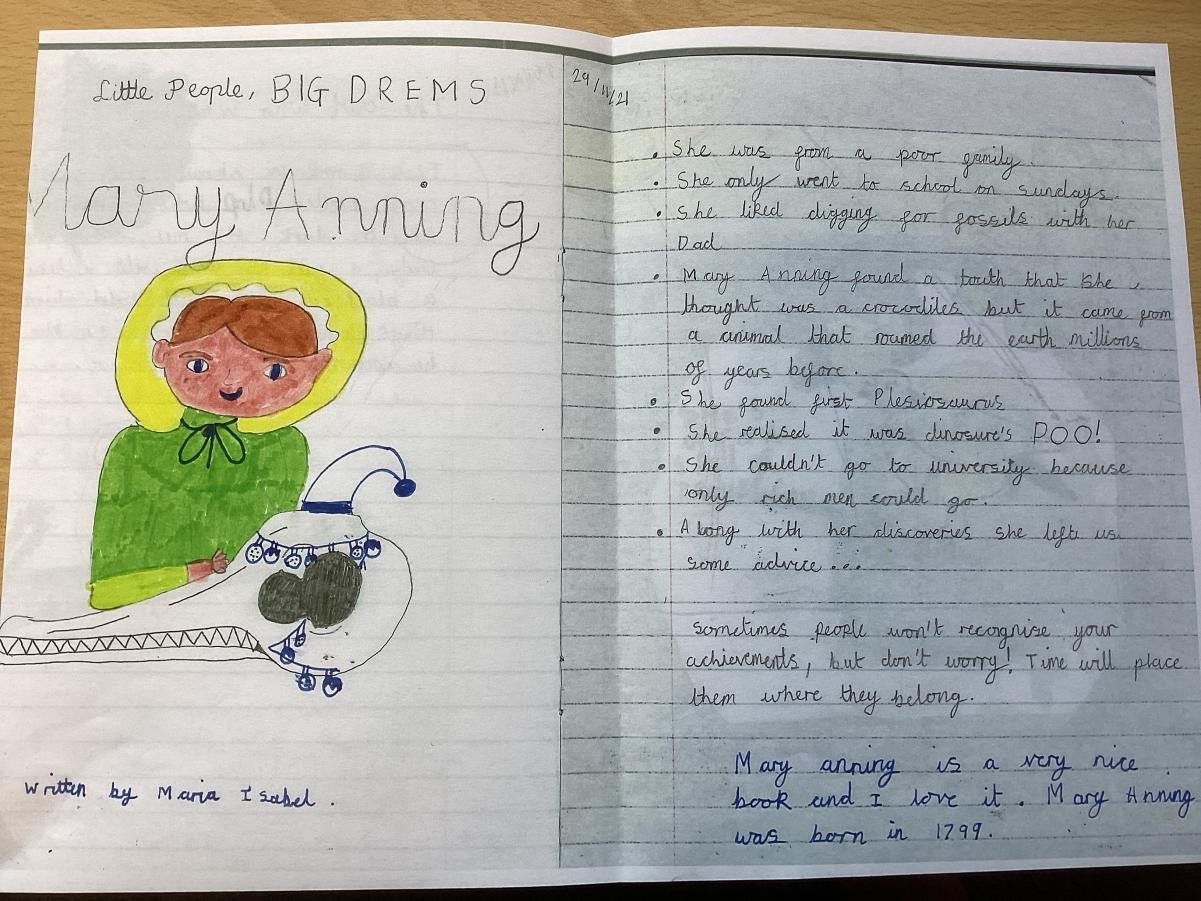 Little People, BIG DREMS
Mary Anning
Written by Maria Isabel.
29/11/21
• She was from a poor family.
• She only went to school on sundays.
• She liked digging for fossils with her
Dad
• Mary Anning found a tooth that she
thought was a crocodiles but it came from
a animal that roamed the earth millions
of years before.
• She found first Plesiosaurus
• She realised it was dinosure's POO!
• She couldn't go to university because
only rich men could go.
• Along with her discoveries she left us
some advice...
Sometimes people won't recognise your
achievements, but don't worry! Time will place
them where they belong.
Mary anning is a very nice
book and I love it. Mary Anning
was born in 1799.